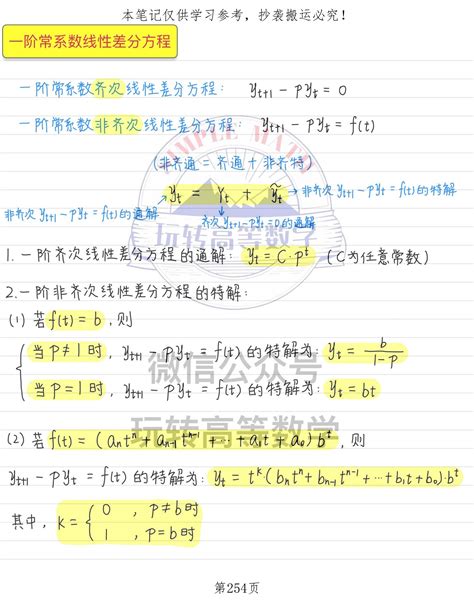 本笔记仅供学习参考，抄袭搬运必究！
一阶常系数线性差分方程
一阶常系数齐次线性差分方程： y_{t+1} - Py_t = 0
一阶常系数非齐次线性差分方程： y_{t+1} - Py_t = f(t)
SIMPLE MATH
(非齐通 = 齐通 + 非齐特)
y_t = Y_t + ỹ_t
非齐次 y_{t+1} - Py_t = f(t) 的特解
非齐次 y_{t+1} - Py_t = f(t) 的通解
齐次 y_{t+1} - Py_t = 0 的通解
玩转高等数学
1. 一阶齐次线性差分方程的通解： y_t = C·P^t (C为任意常数)
2. 一阶非齐次线性差分方程的特解：
(1) 若 f(t) = b , 则
当 P ≠ 1 时， y_{t+1} - Py_t = f(t) 的特解为： y_t = b/(1-P)
微信公众号
当 P = 1 时， y_{t+1} - Py_t = f(t) 的特解为： y_t = bt
玩转高等数学
(2) 若 f(t) = (a_n t^n + a_{n-1} t^{n-1} + ··· + a_1 t + a_0) b^t , 则
y_{t+1} - Py_t = f(t) 的特解为： y_t = t^k·(b_n t^n + b_{n-1} t^{n-1} + ··· + b_1 t + b_0)·b^t
其中， k = { 0 , P ≠ b 时
1 , P = b 时
第254页